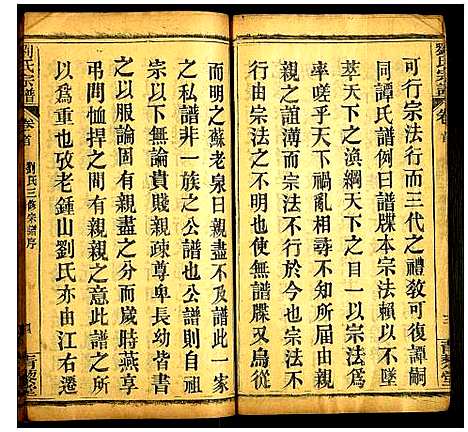 劉氏宗譜
卷首
可行宗法行而三代之禮敎可復譚嗣
同譚氏譜例曰譜牒本宗法賴以不墜
萃天下之渙綱天下之目一以宗法
率嗟乎天下禍亂相尋不知所由與
親之誼消而宗法不行於今也宗法
行由宗法之不明也使無譜牒又烏從
而明之蘇老泉曰親盡不及譜此一家
之私譜非一族之公譜也公譜則自祖
宗以下無論貴賤親疎尊卑長幼皆譜
之以服論固有親盡而歲時燕朝
弔問恤捍之間有親親之意此譜之所
以為重也攷老鍾山劉氏亦由江右遷
劉氏宗譜
卷首
劉氏三修宗譜序
四
青藜堂